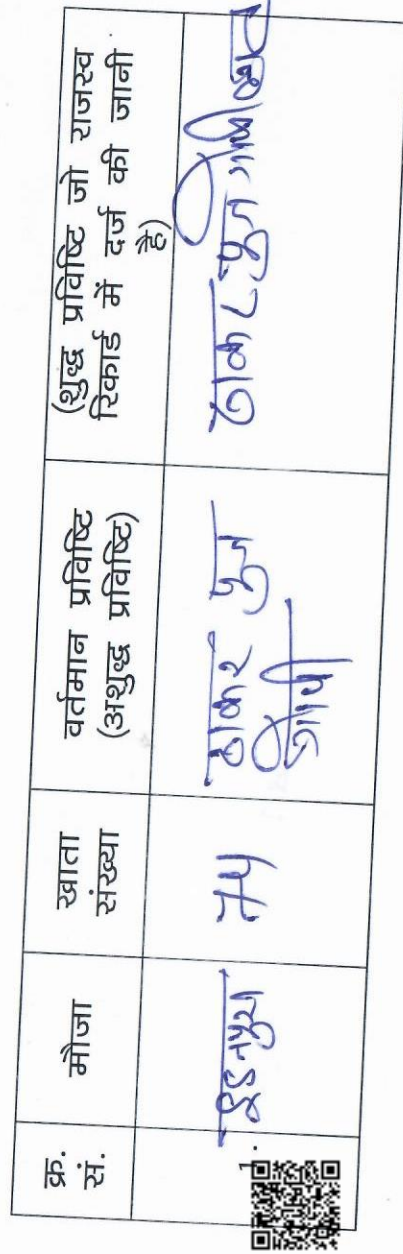 क्र. सं.
मौजा
खाता संख्या
वर्तमान प्रविष्टि
(अशुद्ध प्रविष्टि)
(शुद्ध प्रविष्टि जो राजस्व
रिकार्ड में दर्ज की जानी
है)
1.
74
ठाकर पुत्र
गोपी
ठाकर पुत्र गोपी